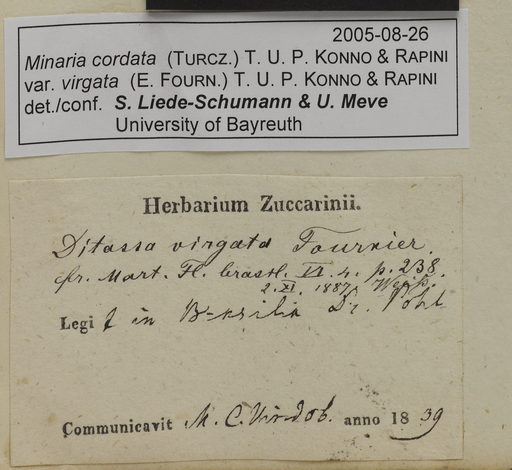 2005-08-26
Minaria cordata (TURCZ.) T. U. P. KONNO & RAPINI
var. virgata (E. FOURN.) T. U. P. KONNO & RAPINI
det./conf. S. Liede-Schumann & U. Meve
University of Bayreuth
Herbarium Zuccarinii.
Ditassa virgata Fournier.
fr. Mart. Fl. brasil. VI. 4. p. 238.
2. XI. 1887.
Legit in Brasilia Dr. Pohl
Communicavit M. C. Vindob. anno 1839